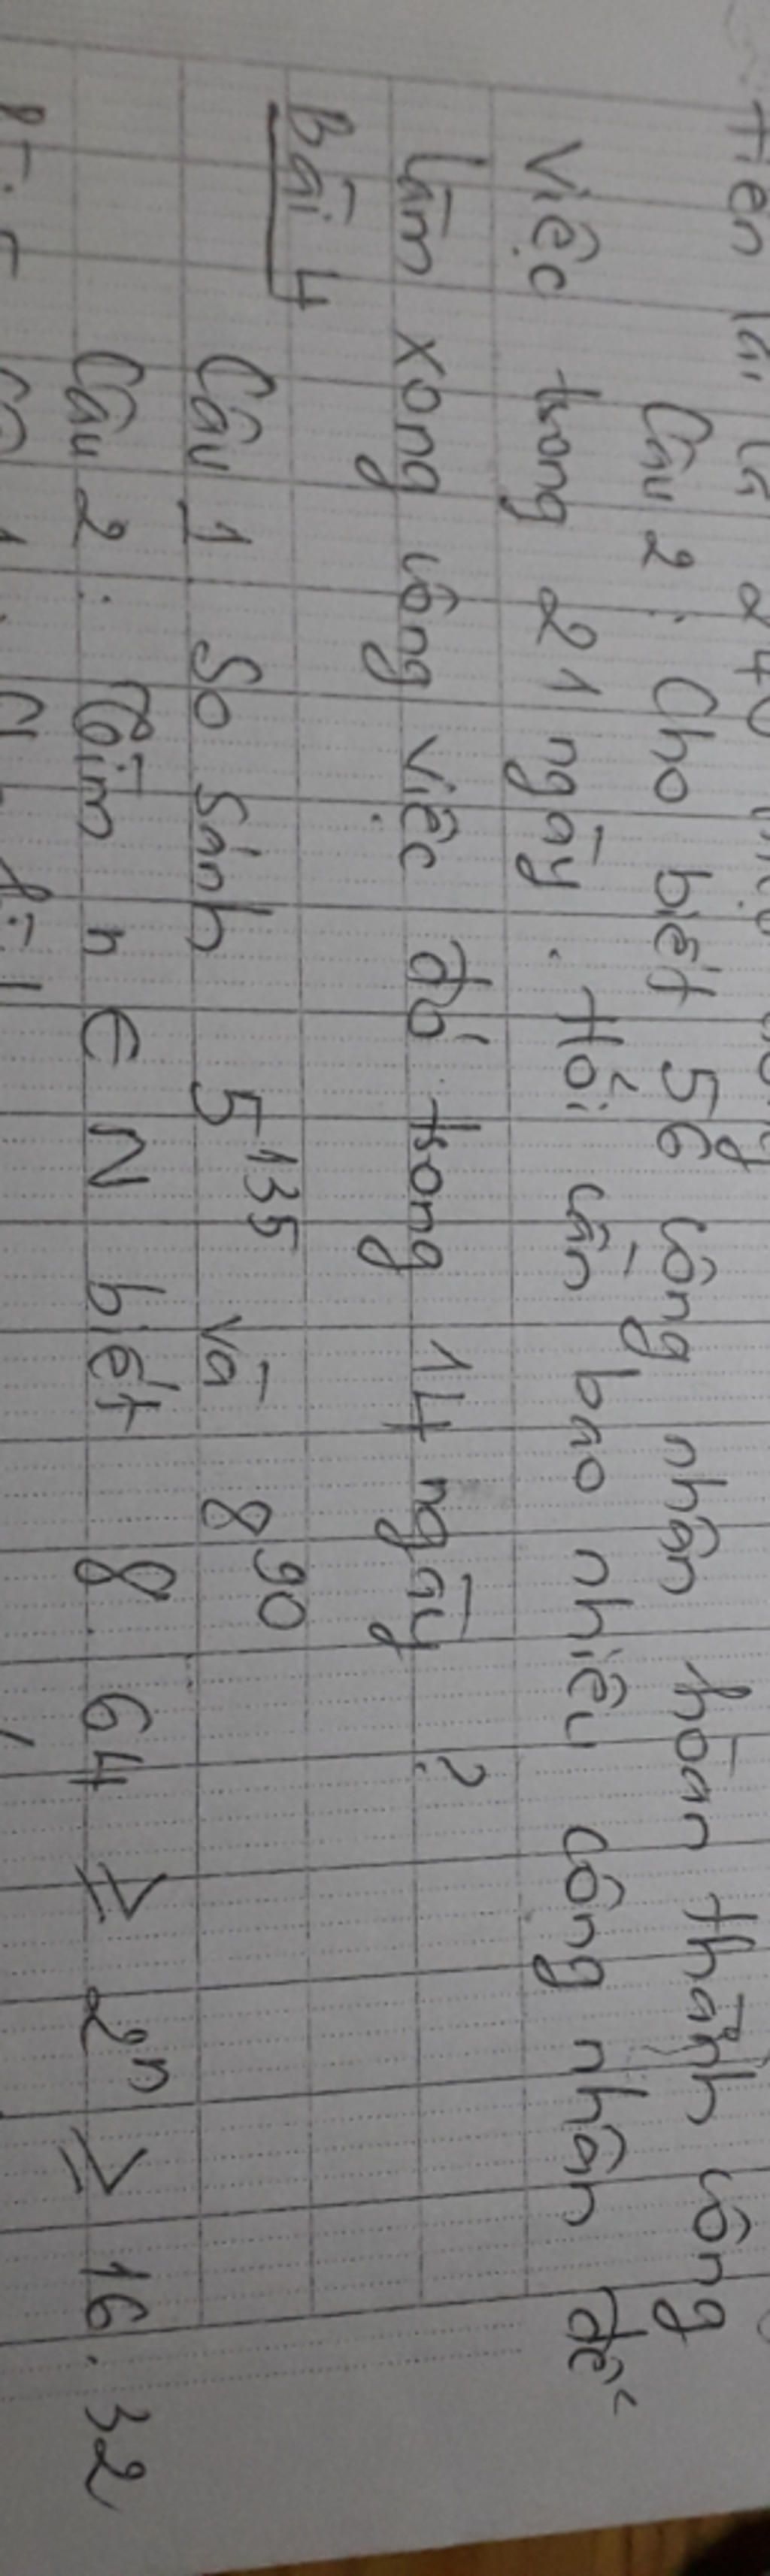 Câu 2: Cho biết 56 công nhân hoàn thành công
việc trong 21 ngày. Hỏi cần bao nhiêu công nhân để
làm xong công việc đó trong 14 ngày?
Bài 4
Câu 1 So sánh 5^135 và 8^90
Câu 2: Tìm n ∈ N biết 8. 64 ≥ 2^n ≥ 16. 32